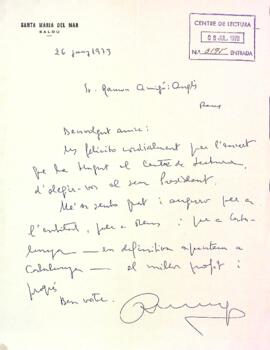 SANTA MARIA DEL MAR
SALOU
CENTRE DE LECTURA
05 JUL. 1973
N.º 2191 ENTRADA
26 juny 1973
Sr. Ramon Amigó i Anglès
Reus
Benvolgut amic:
Us felicito cordialment per l'encert
que ha tingut el Centre de Lectura
d'elegir-vos el seu President.
Me'n sento joiós i auguro per a
l'entitat, per a Reus i per a Cata-
lunya — en definitiva
Catalunya — el millor profit i
progrés
Ben vostre,